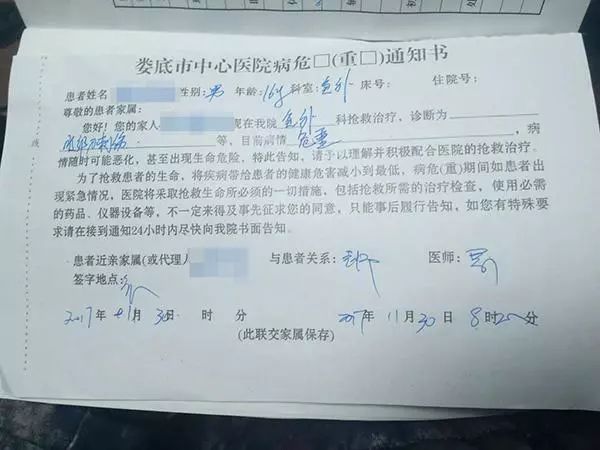 娄底市中心医院病危□(重□)通知书
患者姓名 性别:男 年龄:16岁 科室:急外 床号: 住院号:
尊敬的患者家属:
您好! 您的家人 现在我院 急外 科抢救治疗，诊断为
等，目前病情 危重 ，病
情随时可能恶化，甚至出现生命危险，特此告知，请予以理解并积极配合医院的抢救治疗。
为了抢救患者的生命，将疾病带给患者的健康危害减小到最低，病危(重)期间如患者出
现紧急情况，医院将采取抢救生命所必须的一切措施，包括抢救所需的治疗检查，使用必需
的药品、仪器设备等，不一定来得及事先征求您的同意，只能事后履行告知，如您有特殊要
求请在接到通知24小时内尽快向我院书面告知。
患者近亲家属(或代理人 与患者关系: 医师:
签字地点:
2017年 11月 30日 时 分 2017年 11月 30日 8时 分
(此联交家属保存)